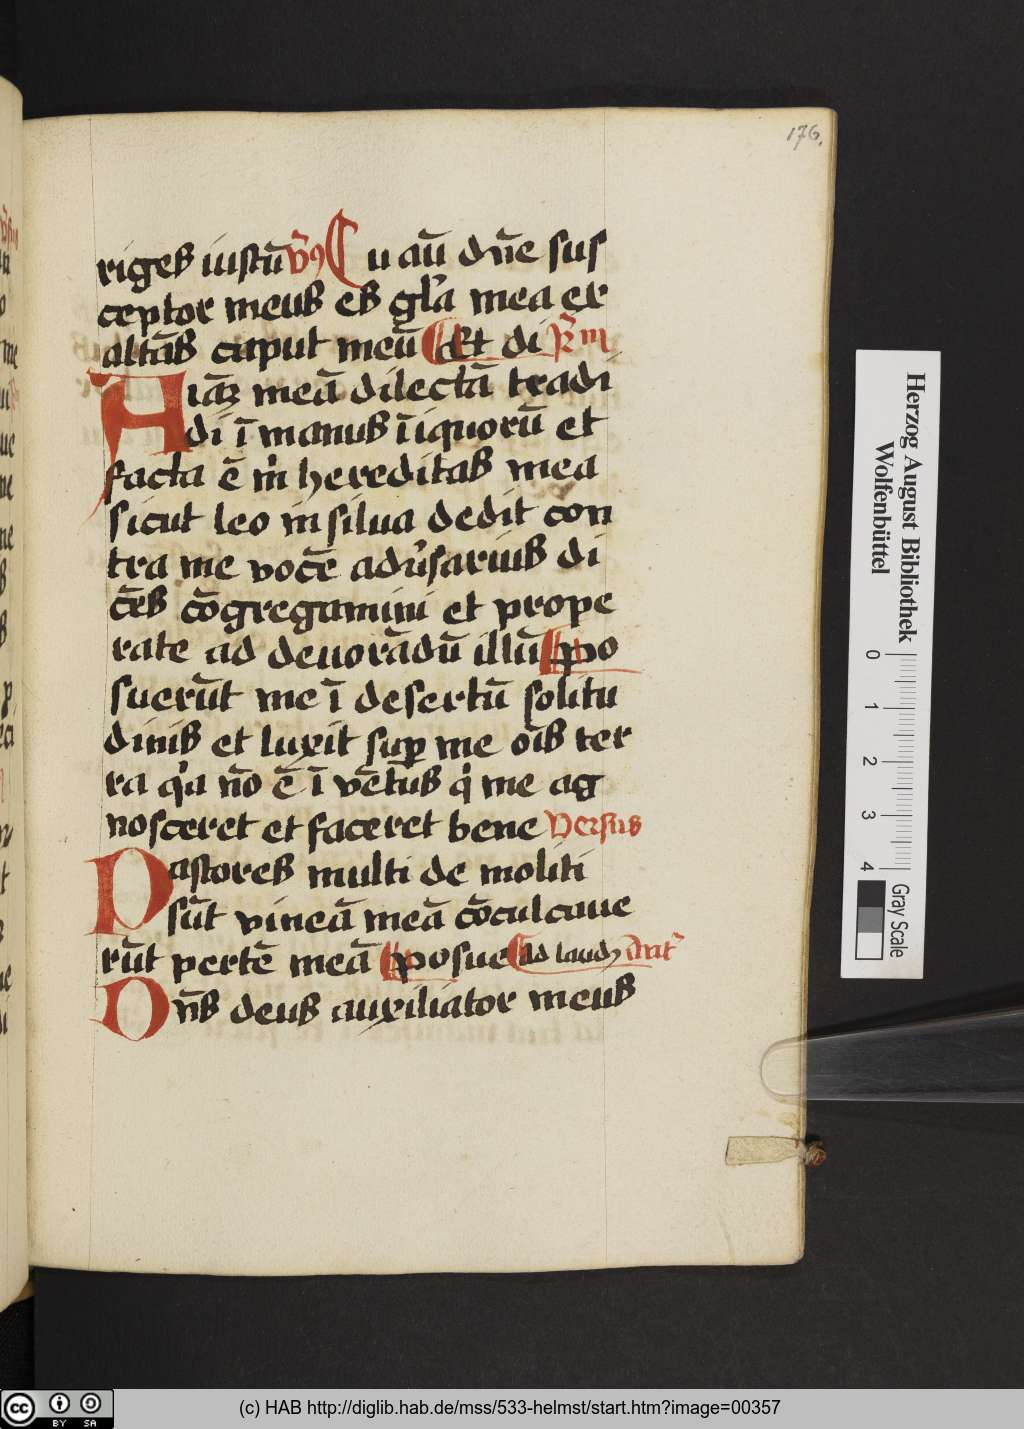 176.
riges iustū v̄9 Tu aū dn̄e sus
ceptor meus es gl̄a mea ex
altās caput meū Et di R̄ m
Aiāꝫ meā dilectā tradi
di ī manus īiquorū et
facta ē m̄ hereditas mea
sicut leo in silua dedit con
tra me vocē adūsarius di
cēs cōgregamini et prope
rate ad deuorādū illū po
suerūt me ī desertū solitu
dinis et luxit suꝑ me oīs ter
ra qͣa nō ē ī vētus qͥ me ag
nosceret et faceret bene Versus
Pastores multi de moliti
sūt vineā meā cōculcaue
rūt pertē meā posue Ad laudꝭ Ant̄
Dn̄s deus auxiliator meus
Herzog August Bibliothek
Wolfenbüttel
0 1 2 3 4
Gray Scale
cc BY SA
(c) HAB http://diglib.hab.de/mss/533-helmst/start.htm?image=00357